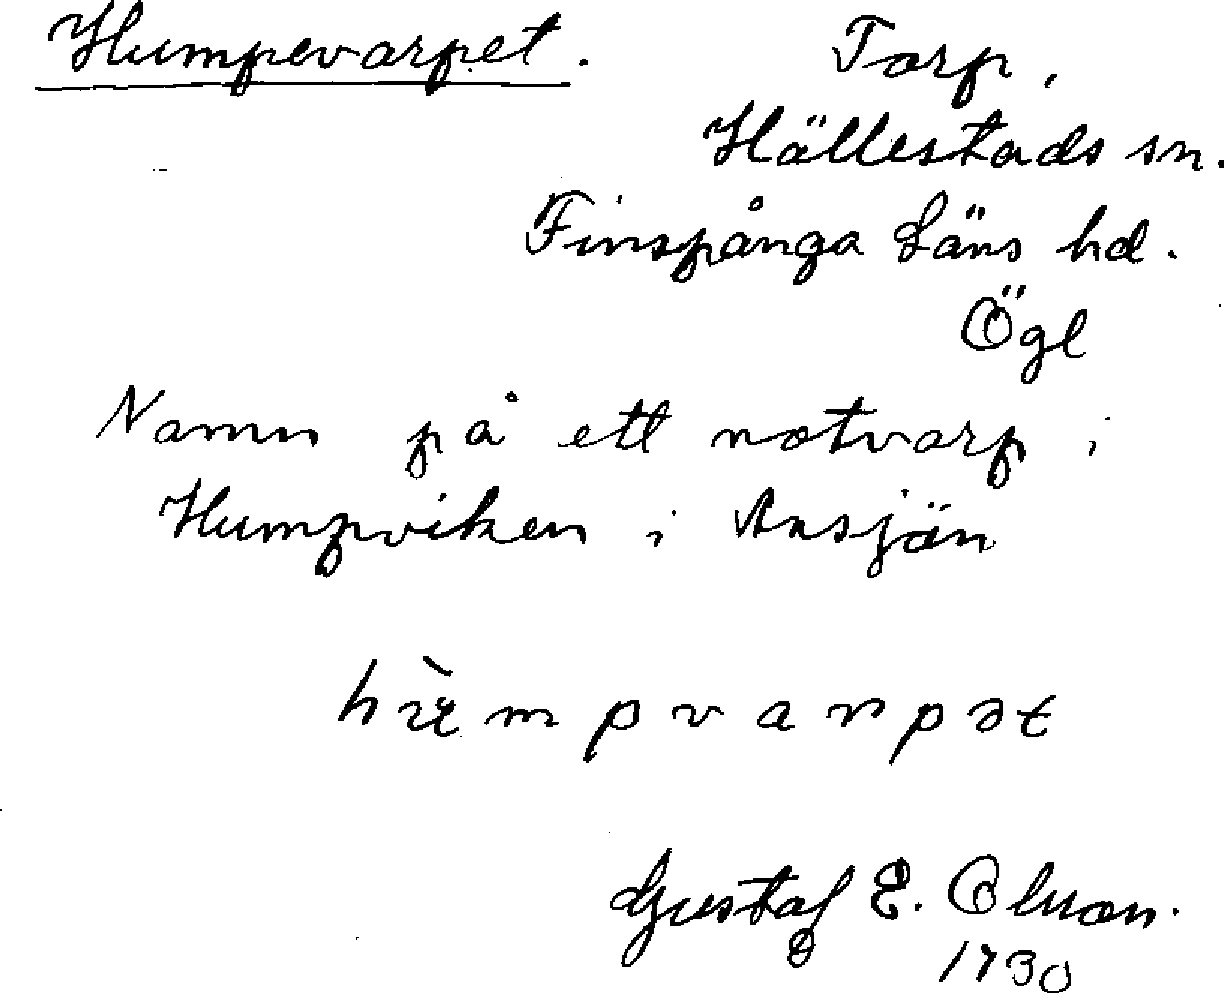 Humpevarpet. Torp.
Hällestads sn.
Finspånga Läns hd.
Ögl
Namn på ett notvarp i
Humpviken i
Gustaf E. Olsson.
1930